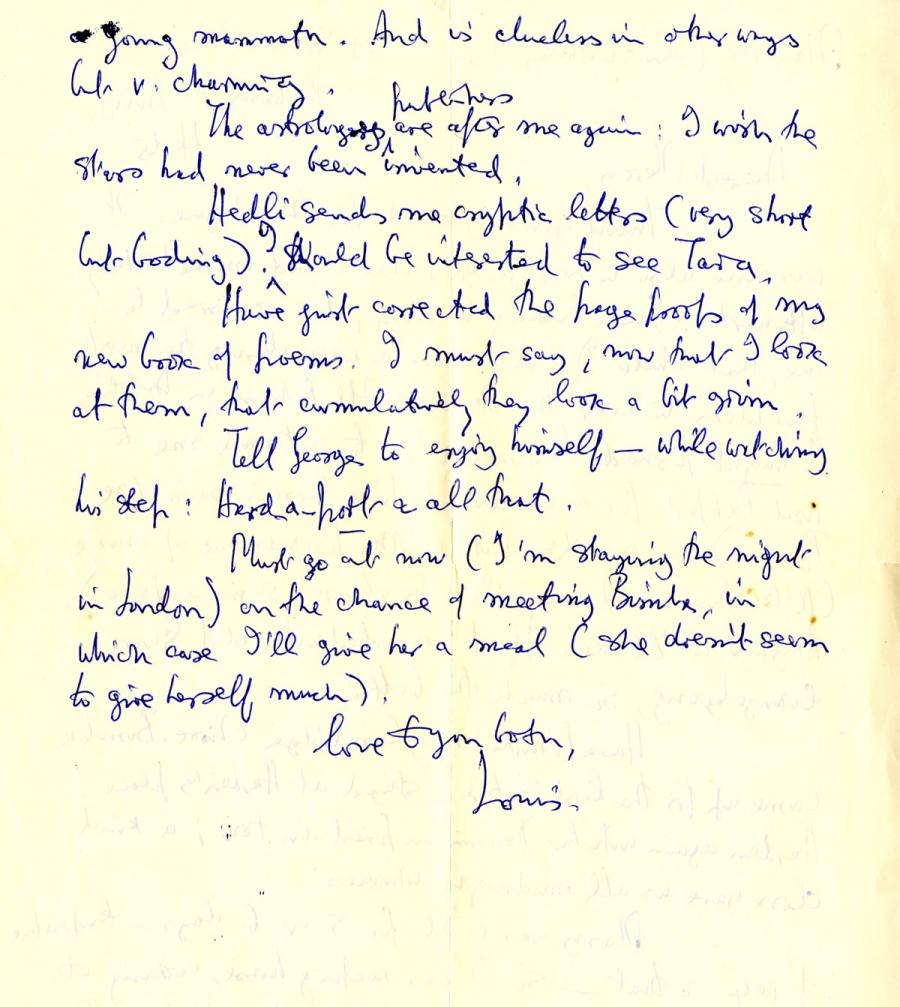 a young mammoth. And is clueless in other ways
but v. charming.
publishers
The astrology are after me again: I wish the
stars had never been invented.
Hedli sends me cryptic letters (very short
but boding). Should be interested to see Tara.
Have just corrected the page proofs of my
new book of poems. I must say, now that I look
at them, that cumulatively they look a bit grim.
Tell George to enjoy himself — while watching
his step: Hard-a-port & all that.
Must go out now (I'm staying the night
in London) on the chance of meeting Bimba, in
which case I'll give her a meal (she doesn't seem
to give herself much).
love to you both,
Louis.